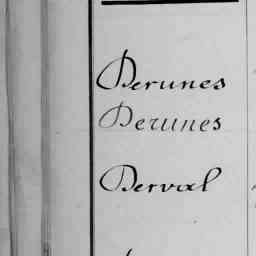 Derunes
Derunes
Derval